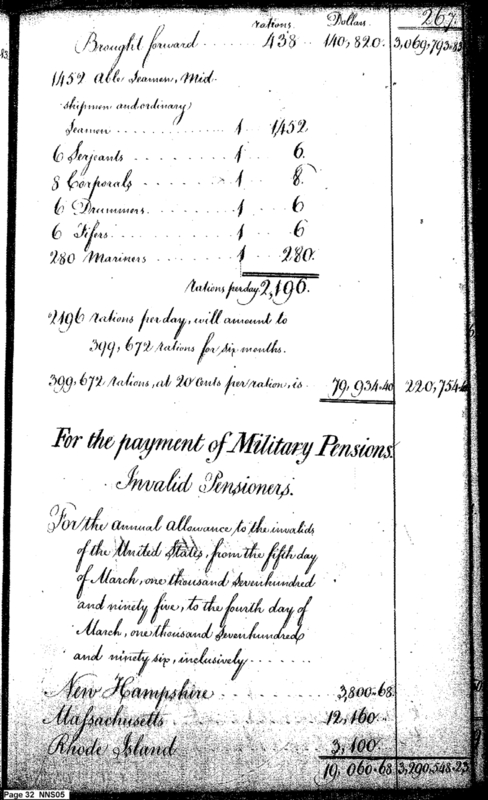 267.
rations Dollars
Brought forward 438 140,820. 3,069,793.83
1452 Able Seamen, Mid
shipmen and ordinary
Seamen 1 1452
6 Serjeants 1 6.
8 Corporals 1 8.
6 Drummers 1 6
6 Fifers 1 6
280 Mariners 1 280.
rations per day 2,196.
2196 rations per day, will amount to
399,672 rations for six months.
399,672 rations, at 20 Cents per ration, is 79,934.40 220,754.4
For the payment of Military Pensions.
Invalid Pensioners.
For the annual allowance to the invalids
of the United States, from the fifth day
of March, one thousand seven hundred
and ninety five, to the fourth day of
March, one thousand seven hundred
and ninety six, inclusively
New Hampshire 3,800.68
Massachusetts 12,160.
Rhode Island 3,100.
19,060.68 3,290,548.23
Page 32 NNS05